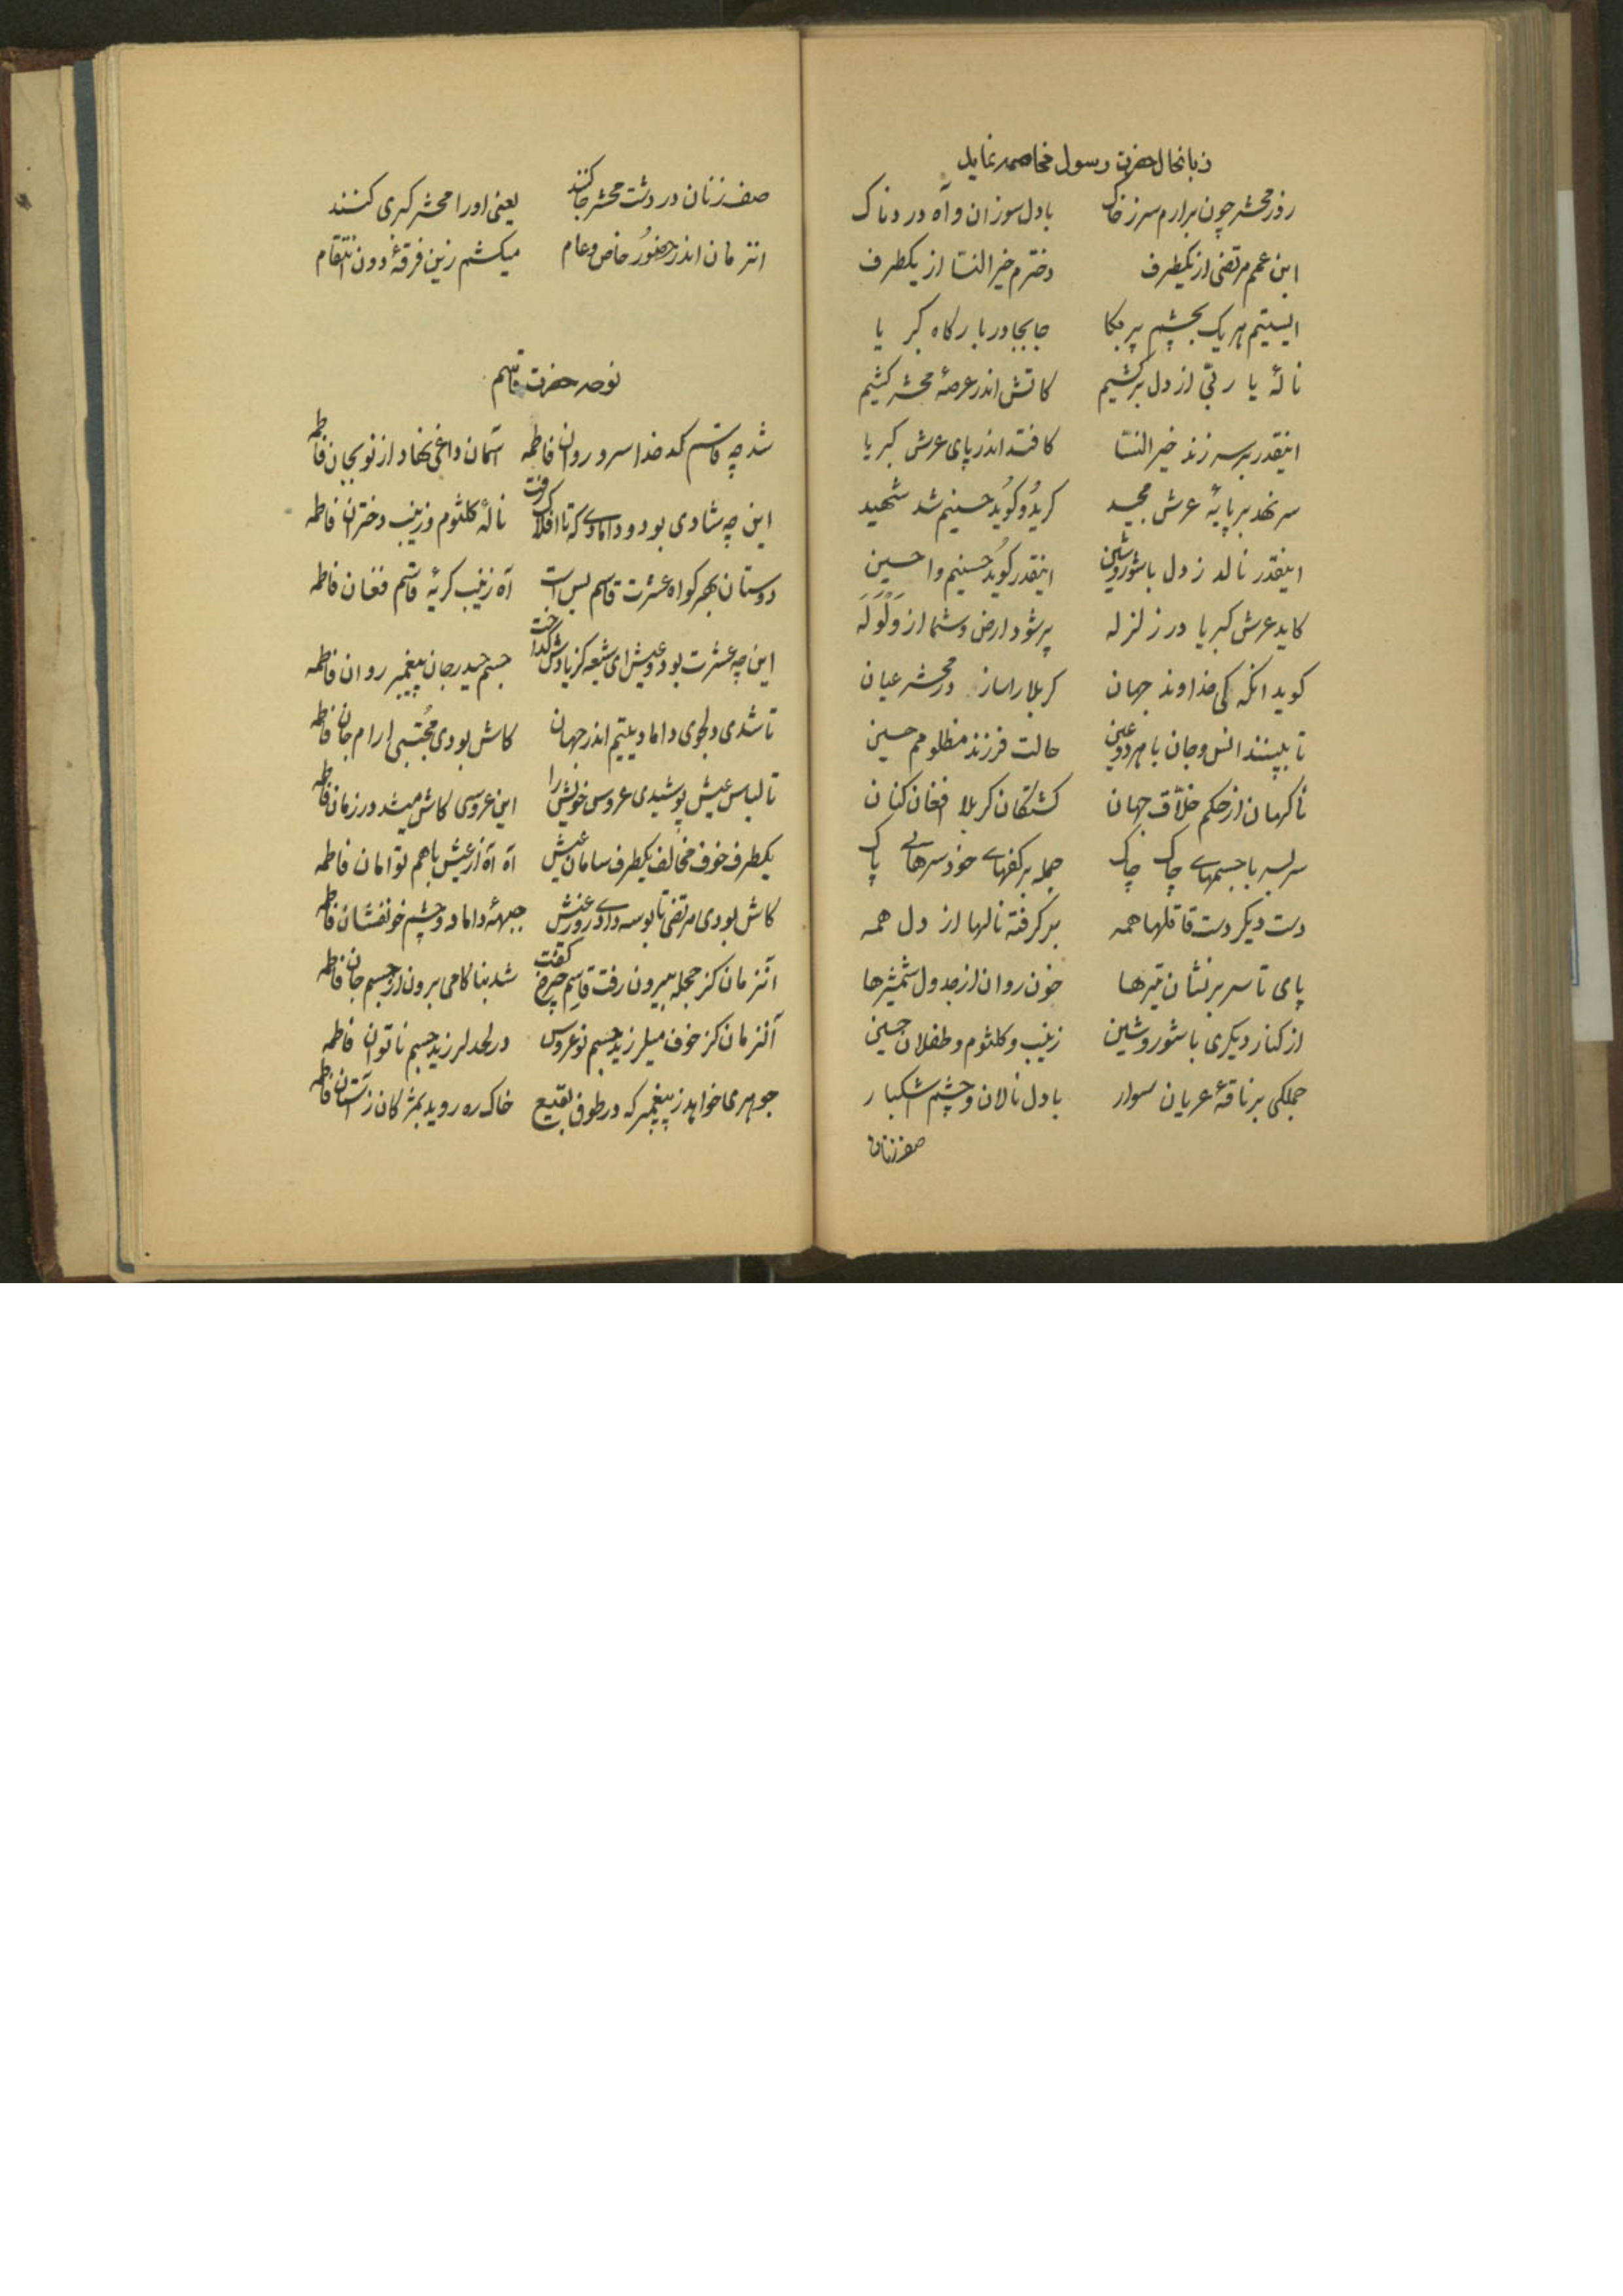 زبانحال حضرت رسول مخاصمه نماید
روز محشر چون برارم سر ز خاک بادل سوزان و آه دردناک
ابن عمم مرتضی از یکطرف دخترم خیر النسا از یکطرف
ایستیم هر یک بچشم پر بکا جابجا در بارکاه کبریا
نالهٔ یا ربّی از دل برکشیم کاتش اندر عرصهٔ محشر کشیم
اینقدر بر سر زند خیر النسا کافتد اندر پای عرش کبریا
سر نهد بر پایهٔ عرش مجید کرید و کوید حسینم شد شهید
اینقدر نالد ز دل باشور و شین اینقدر کوید حسینم وا حسین
کاید عرش کبریا در زلزله پر شود ارض و سما از ولوله
کوید انکه کی خداوند جهان کربلا را ساز در محشر عیان
تا ببینند انس و جان با هر دو عین حالت فرزند مظلومم حسین
ناکهان از حکم خلّاق جهان کشتکان کربلا افغان کنان
سر بسر با جسمهای چاک چاک جمله بر کفهای خود سرهای پاک
دست دیکر دست قاتلها همه بر کرفته نالها از دل همه
پای تا سر بر نشان تیرها خون روان از جدول شمشیرها
از کنار دیکری با شور و شین زینب و کلثوم و طفلان حسین
جملکی بر ناقهٔ عریان سوار بادل نالان و چشم اشکبار
صف زنان
صف زنان در دشت محشر جا کنند یعنی اورا محشر کبری کنند
انزمان اندر حضور خاص و عام میکشم زین فرقهٔ دون انتقام
نوحه حضرت قاسم
شد چه قاسم کدخدا سرو روان فاطمه آسمان داغی نهاد از نو بجان فاطمه
این چه شادی بود و دامادی که تا افلاک رفت نالهٔ کلثوم و زینب دختران فاطمه
دوستان بهر کواه عشرت قاسم بس است آه زینب کریهٔ قاسم فغان فاطمه
این چه عشرت بود و عیش ای شیعه کز یادش کداخت جسم حیدر جان پیغمبر روان فاطمه
تا شدی دلجوی داماد یتیم اندر جهان کاش بودی مجتبی ارام جان فاطمه
تا لباس عیش پوشیدی عروس خویش را این عروسی کاش میشد در زمان فاطمه
یکطرف خوف مخالف یکطرف سامان عیش آه آه از عیش باهم توامان فاطمه
کاش بودی مرتضی تا بوسه دادی در عیش جبههٔ داماد و چشم خونفشان فاطمه
آنزمان کز حجله بیرون رفت قاسم چرخ کفت شد بناکامی برون از جسم جان فاطمه
آنزمان کز خوف میلرزید جسم نوعروس در لحد لرزید جسم ناتوان فاطمه
جوهری خواهد ز پیغمبر که در طوف بقیع خاک ره روید بمژکان ز آستان فاطمه